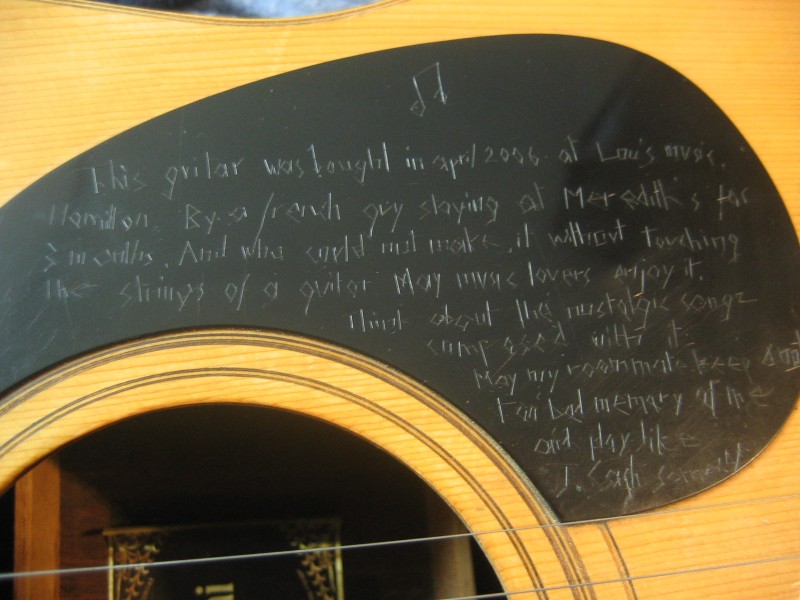 This guitar was bought in april 2006. at Lou's music.
Hamilton. By a french guy staying at Meredith's for
3 months. And who could not make it without touching
the strings of a guitar May music lovers enjoy it.
Think about the nostalgic songs
composed with it.
May my roommate keep a not
bad memory of me
and play like
J. Cash someday.